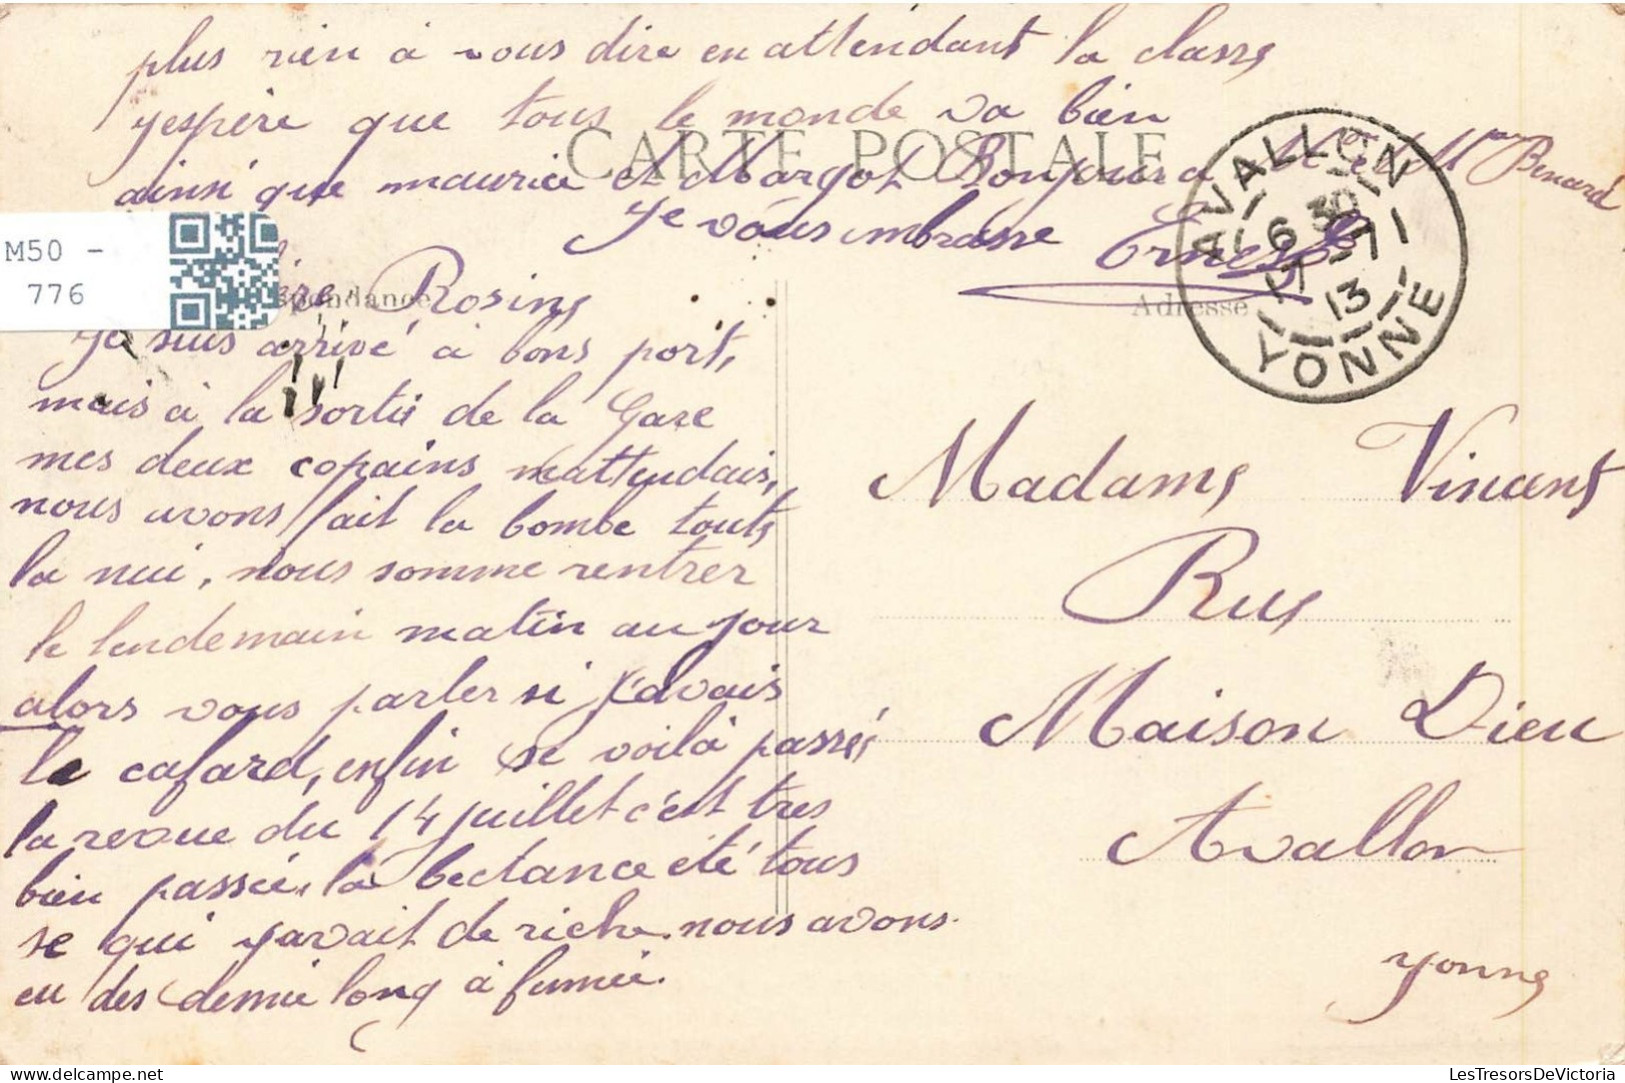 plus rien à vous dire en attendant la classe
j'espère que tous le monde va bien
CARTE POSTALE
ainsi que maurice et Margot Bonjour a Mr et Mme Benard
je vous embrasse Ernest
AVALLON
6 30
17 -7
13
YONNE
M50 -
776
Rosine
spondance
Adresse
Je suis arrivé à bons port,
mais à la sortie de la Gare
mes deux copains m'attendais,
nous avons fait la bombe toute
la nui, nous somme rentrer
le lendemain matin au jour
alors vous parler si j'avais
le cafard, enfin se voilà passée
la revue du 14 juillet c'est tres
bien passée, la bectance été tous
se qui y avait de riche. nous avons
eu des demie long à fumée.
Madame Vincent
Rue
Maison Dieu
Avallon
Yonne
LesTresorsDeVictoria.com